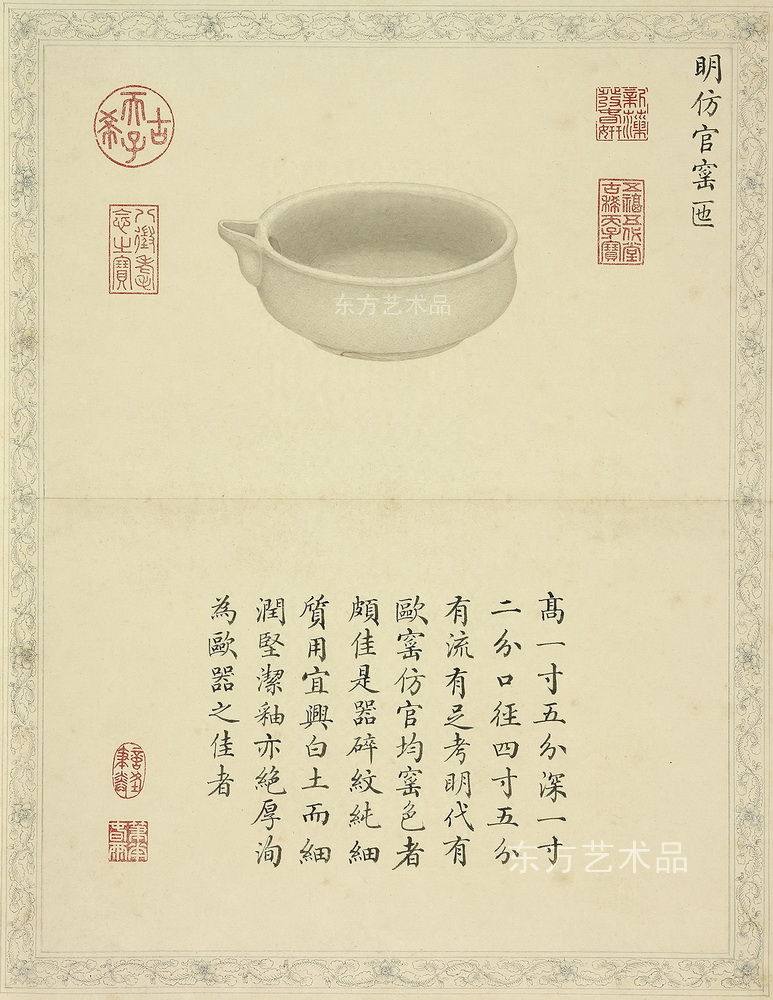 明仿官窯匜
五福五代堂古稀天子寶
古希天子
八徵耄念之寶
东方艺术品
髙一寸五分深一寸
二分口徑四寸五分
有流有足考明代有
歐窯仿官均窯色者
頗佳是器碎紋純細
質用宜興白土而細
潤堅潔釉亦絕厚洵
為歐器之佳者
东方艺术品